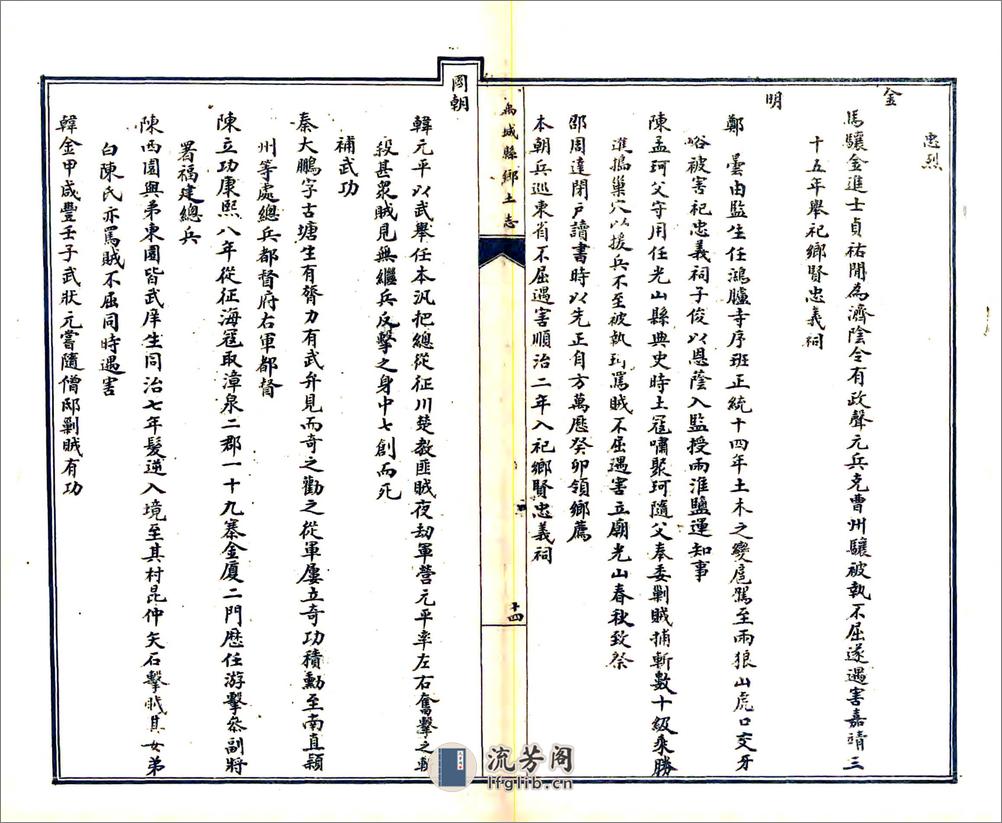 忠烈
金
馬驤金進士貞祐間為濟陰令有政聲元兵克曹州驤被執不屈遂遇害嘉靖三
十五年舉祀鄉賢忠義祠
明
鄭曇由監生任鴻臚寺序班正統十四年土木之變扈駕至兩狼山虎口交牙
峪被害祀忠義祠子俊以恩蔭入監授兩淮鹽運知事
陳孟珂父守用任光山縣典史時土寇嘯聚珂隨父奉委剿賊捕斬數十級乘勝
進搗巢穴以援兵不至被執珂罵賊不屈遇害立廟光山春秋致祭
邵周達閉戶讀書時以先正自方萬厯癸卯領鄉薦
本朝兵巡東省不屈遇害順治二年入祀鄉賢忠義祠
禹城縣鄉土志
十四
國朝
韓元平以武舉任本汛把總從征川楚教匪賊夜劫軍營元平率左右奮擊之斬
殺甚眾賊見無繼兵反擊之身中七創而死
補武功
秦大鵬字古塘生有膂力有武弁見而奇之勸之從軍屢立奇功積勳至南直潁
州等處總兵都督府右軍都督
陳立功康熙八年從征海寇取漳泉二郡一十九寨金廈二門歷任游擊叅副將
署福建總兵
陳西園與弟東園皆武庠生同治七年髮逆入境至其村昆仲矢石擊賊其女弟
白陳氏亦罵賊不屈同時遇害
韓金甲咸豐壬子武狀元嘗隨僧邸剿賊有功
流芳阁
lfglib.cn